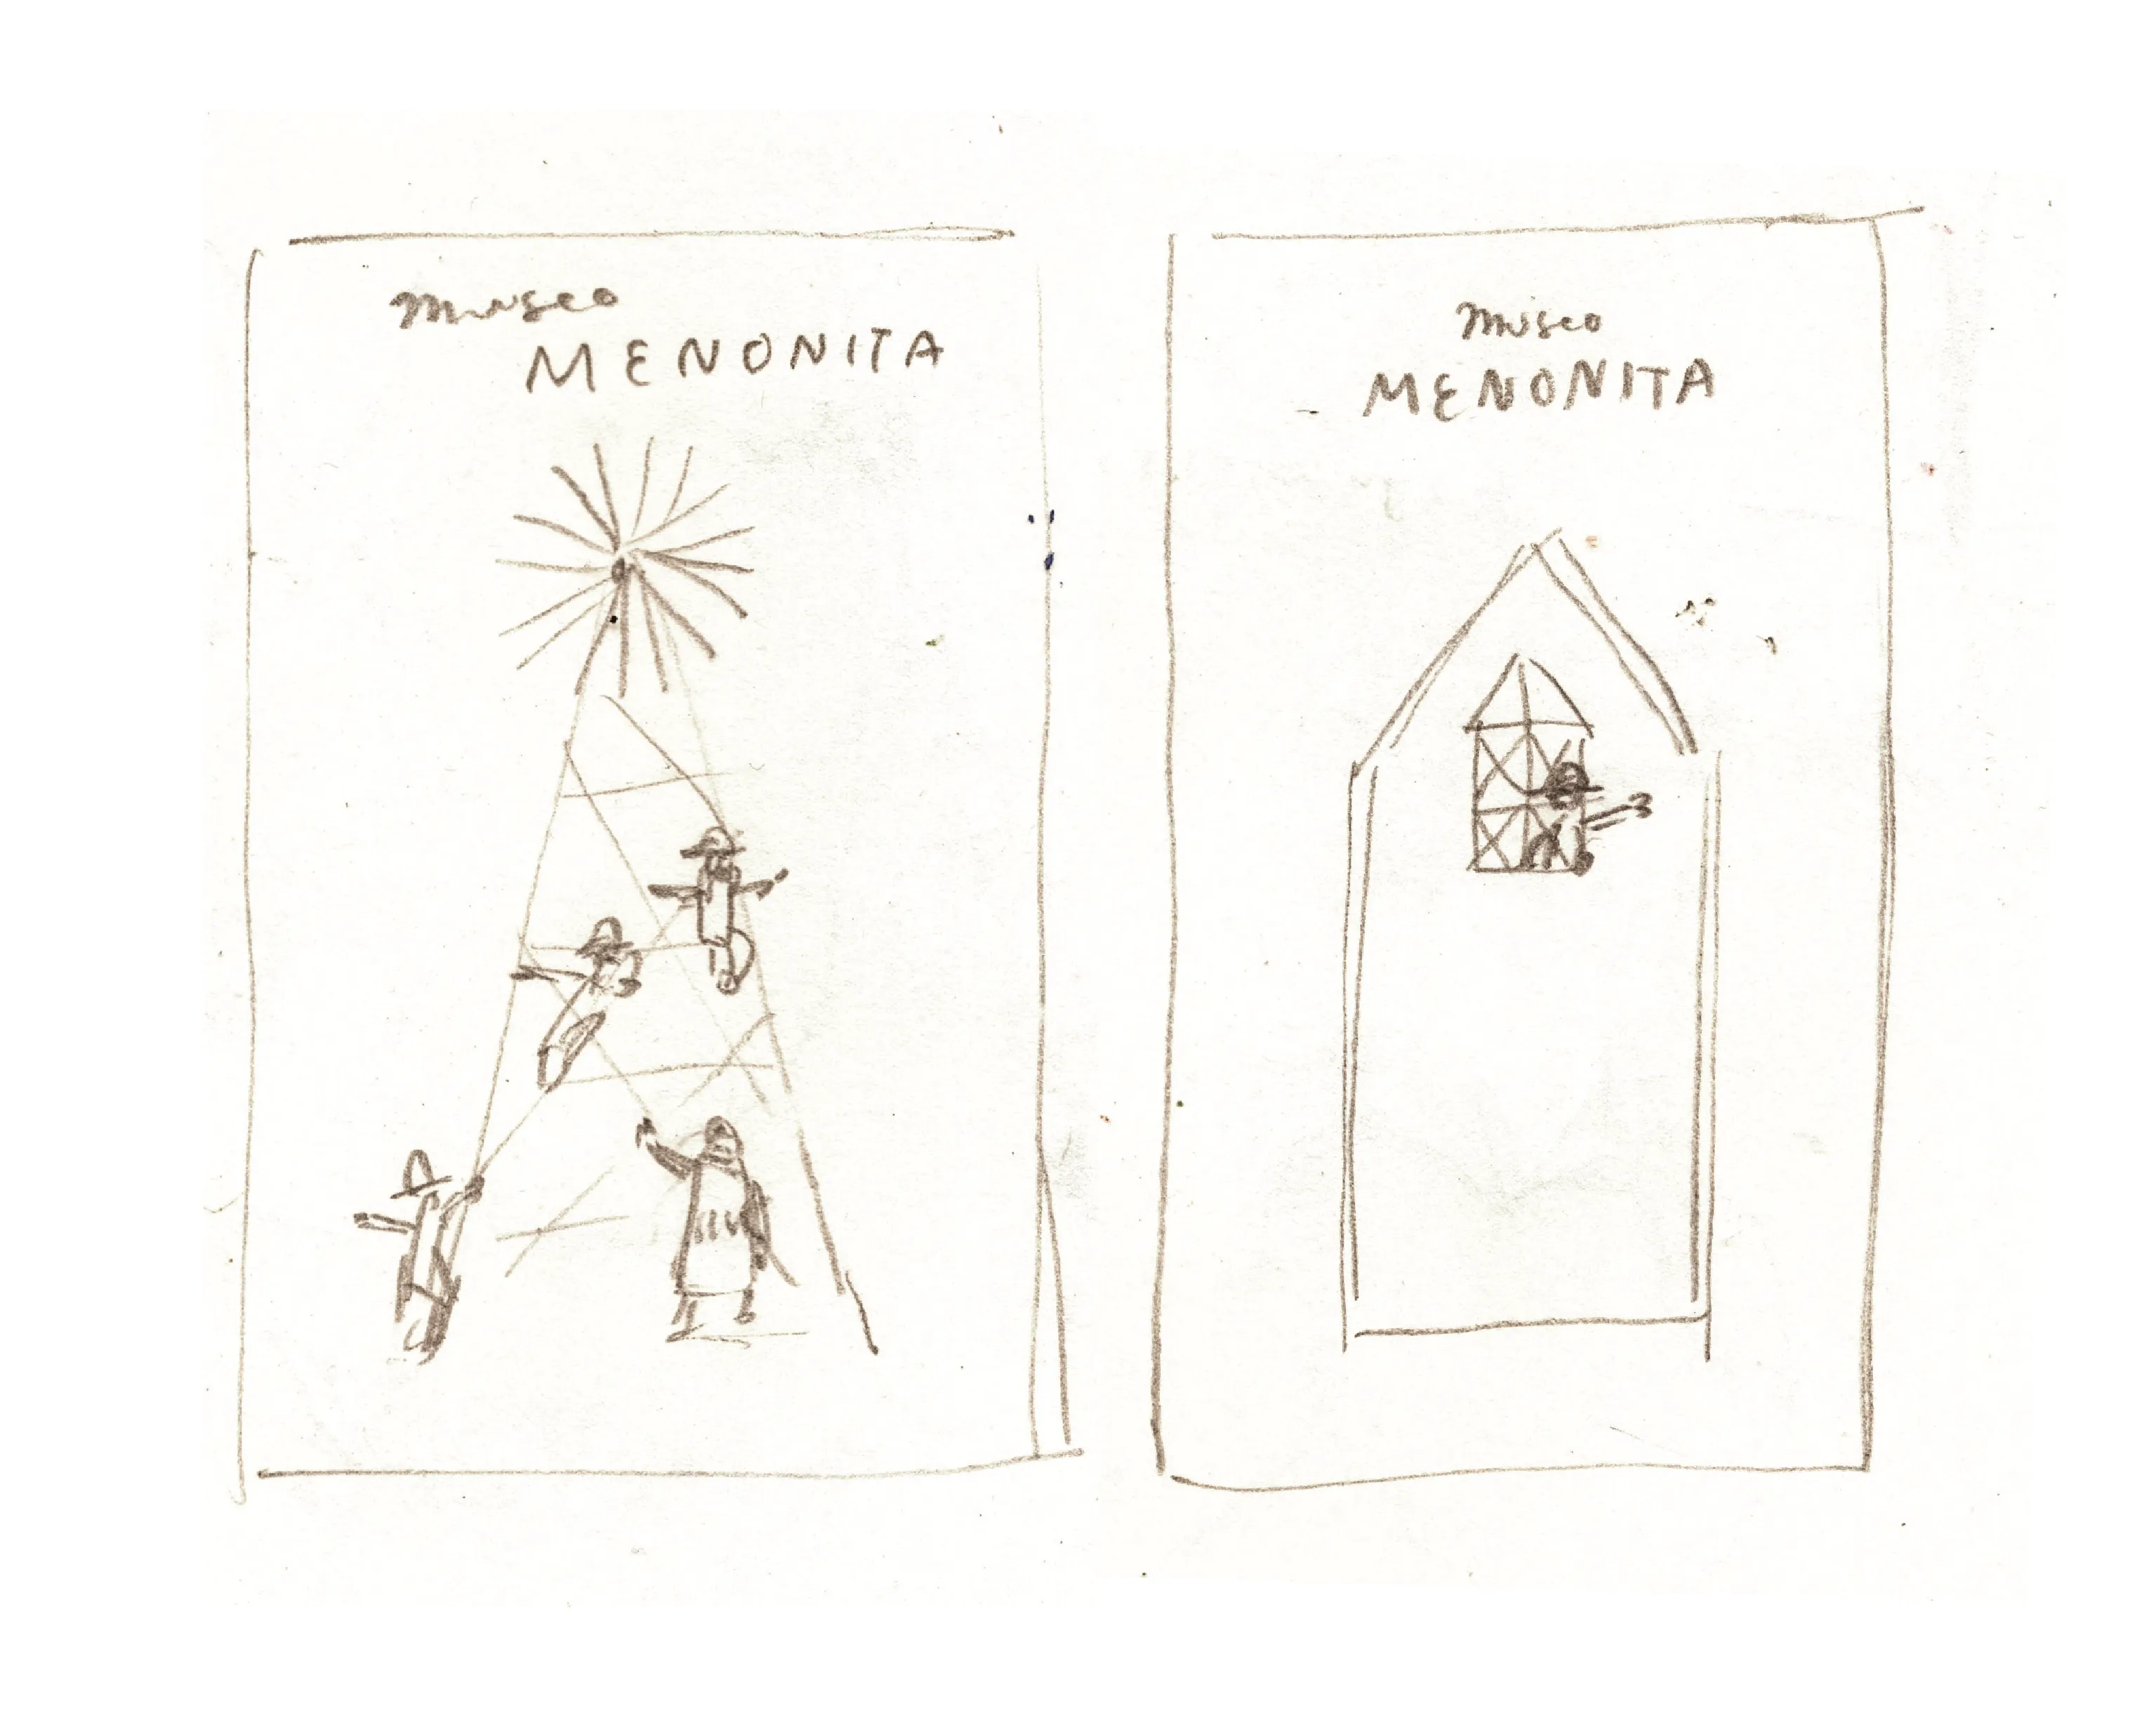 Museo
MENONITA
Museo
MENONITA